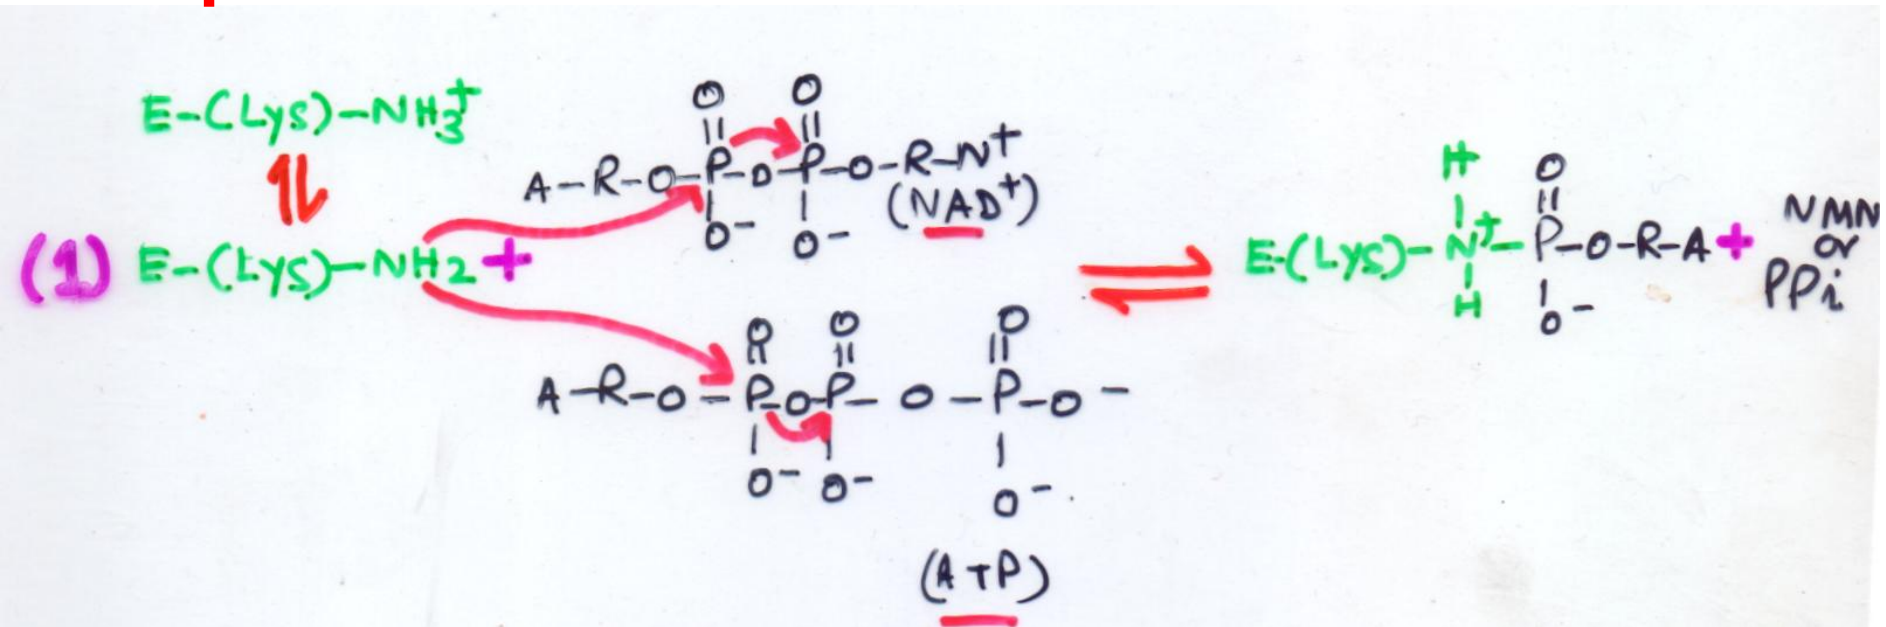 E-(Lys)-NH3+
(1) E-(Lys)-NH2 +
O O
|| ||
A-R-O-P-O-P-O-R-N+
| |
O- O-
(NAD+)
O O O
|| || ||
A-R-O-P-O-P-O-P-O-
| | |
O- O- O-
(ATP)
H O
| ||
E-(Lys)-N+-P-O-R-A + NMN or PPi
| |
H O-